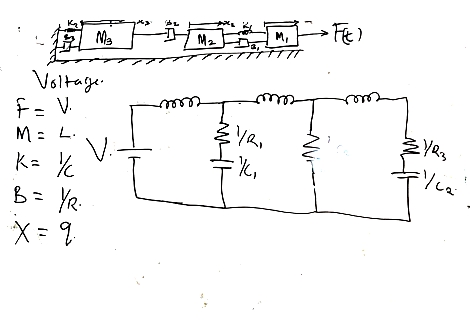 K2 x3 B2 x2 K1
B3 M3 M2 B1 M1 F(t)
Voltage.
F = V.
M = L.
K = 1/C
B = 1/R.
X = q
V.
1/R1
1/C1
1/R3
1/C2